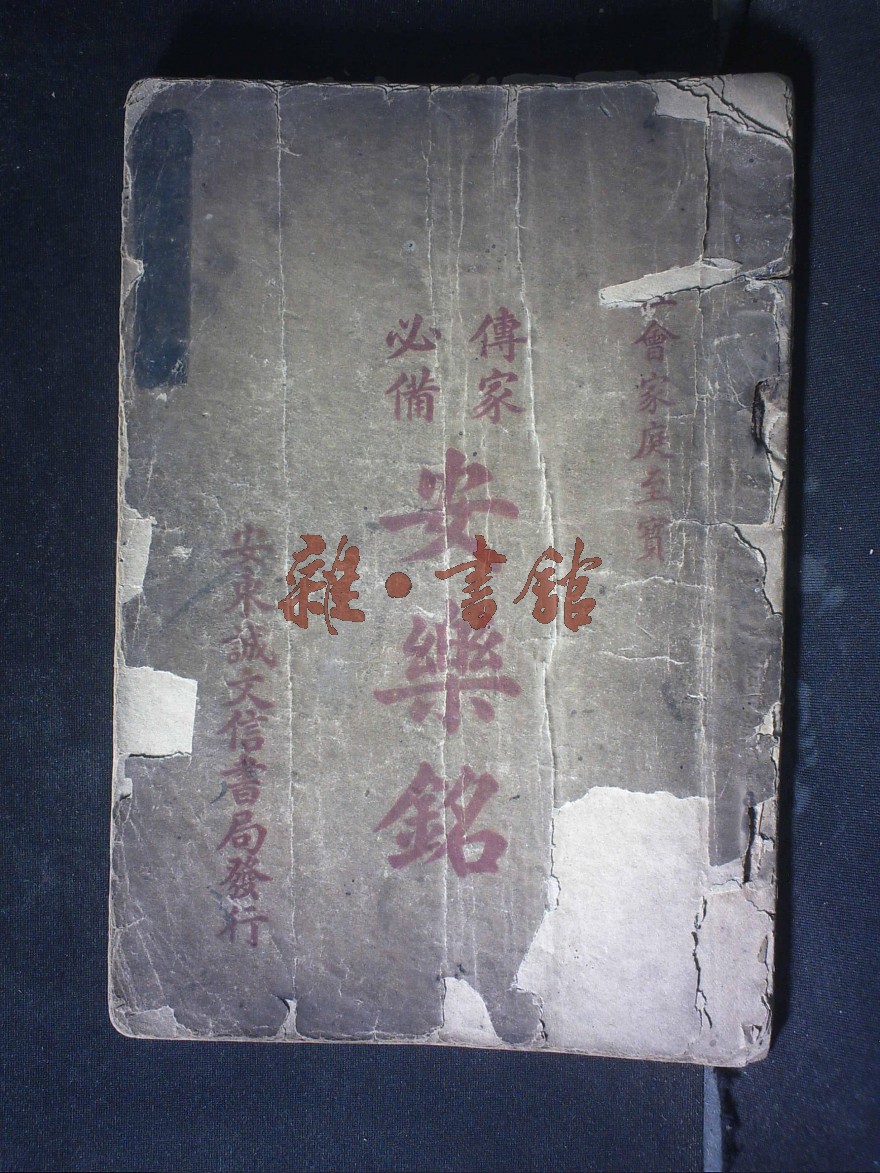 社會家庭至寶
傳家
必備
安樂銘
安東誠文信書局發行
雜·書舘